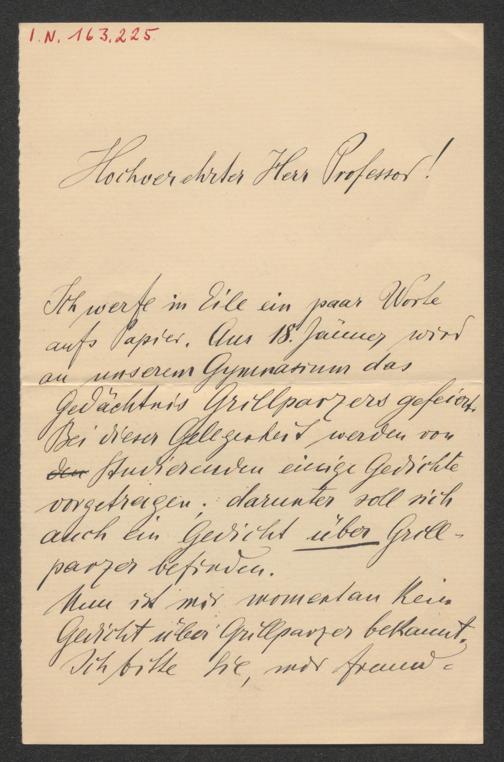 I.N. 163.225
Hochverehrter Herr Professor!
Ich werfe in Eile ein paar Worte
aufs Papier. Am 18. Jänner wird
an unserem Gymnasium das
Gedächtnis Grillparzers gefeiert.
Bei dieser Gelegenheit werden von
den Studierenden einige Gedichte
vorgetragen; darunter soll sich
auch ein Gedicht über Grill-
parzer befinden.
Nun ist mir momentan kein
Gedicht über Grillparzer bekannt.
Ich bitte Sie, mir freund-